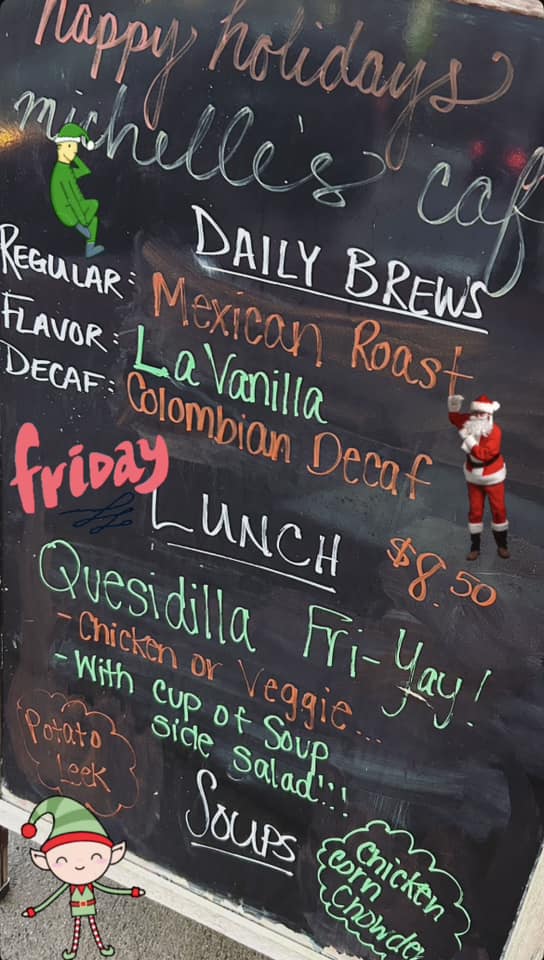 happy holidays
michelle's caf
DAILY BREWS
REGULAR: Mexican Roast
FLAVOR: La Vanilla
DECAF: Colombian Decaf
friday
LUNCH $8.50
Quesidilla Fri-Yay!
- Chicken or Veggie...
- With cup of Soup
side salad!!!
Potato
Leek
SOUPS
Chicken
corn
Chowder